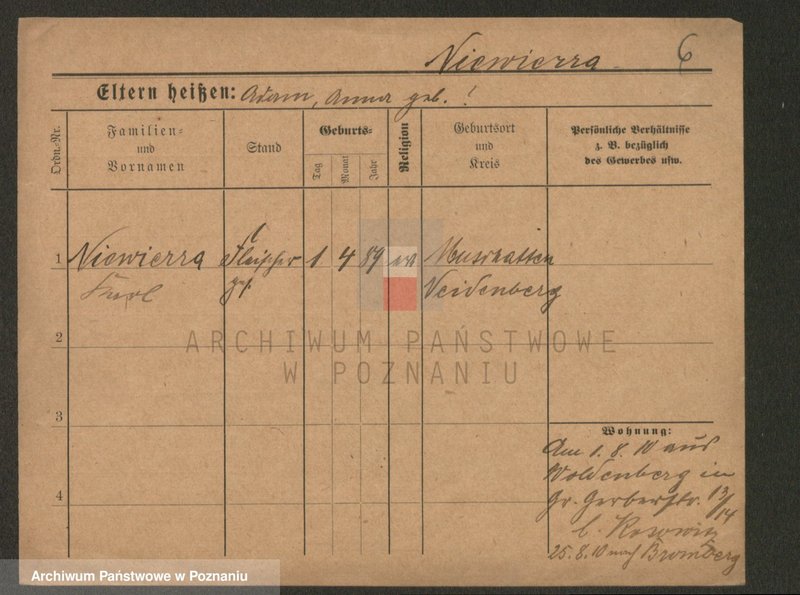 Niewierra 6
Eltern heißen: Adam, Anna geb. !
Ordn.-Nr.
Familien-
und
Vornamen
Stand
Geburts-
Tag
Monat
Jahr
Religion
Geburtsort
und
Kreis
Persönliche Verhältnisse
z. B. bezüglich
des Gewerbes usw.
1 Niewierra Fleischer 1 4 89 ev Muschaken
Karl ges. Neidenberg
2
ARCHIWUM PAŃSTWOWE
W POZNANIU
3
4
Wohnung:
Am 1. 8. 10 aus
Woldenberg in
Gr. Gerberstr. 13/14
b.
25. 8. 10 nach Bromberg
Archiwum Państwowe w Poznaniu